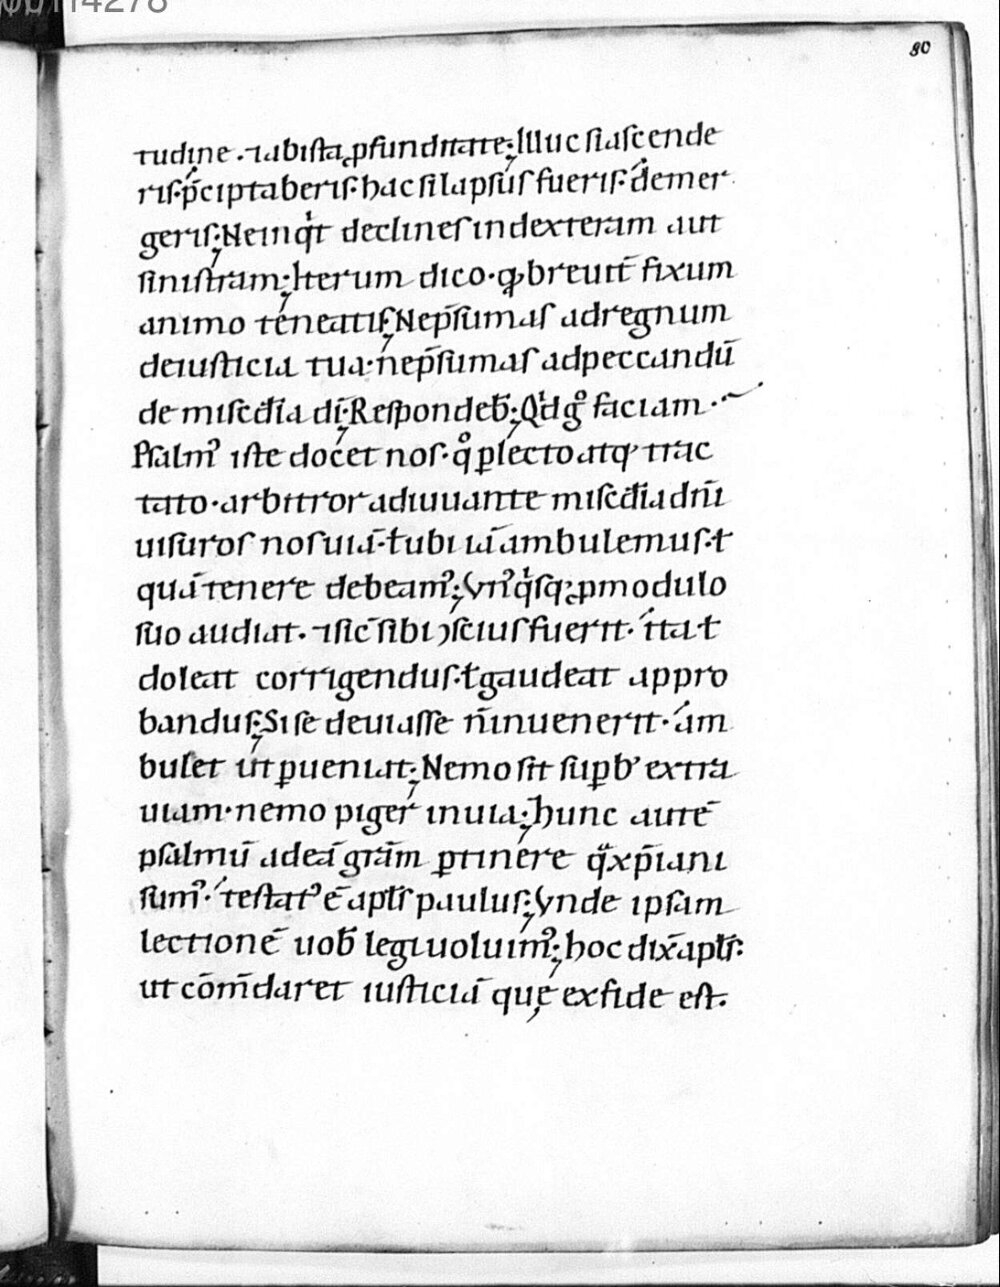 80
tudine. ⁊ ab ista ꝓfunditate; Illuc si ascende
ris. p̄cipitaberis. hac si lapsus fueris. demer
geris; Ne inqͥt declines in dexteram aut
sinistram; Iterum dico. qđ breuit̄ fixum
animo teneatis; Ne p̄sumas ad regnum
de iusticia tua. ne p̄sumas ad peccandū
de misc̄dia dī; Respondeb; Qͥd gͦ faciam.
Psalmꝰ iste docet nos. qͦ ꝑlecto atqꝫ trac
tato. arbitror adiuuante misc̄dia dn̄i
uisuros nos uiā. ł ubi iā ambulemus. ł
quā tenere debeamꝰ; Vnꝰqͥsqꝫ ꝓ modulo
suo audiat. ⁊ sic̄ sibi ꝯscius fuerit. ita ł
doleat corrigendus. ł gaudeat appro
bandus; Si se deuiasse n̄ inuenerit. am
bulet ut ꝑueniat; Nemo sit suꝑbꝰ extra
uiam. nemo piger in uia; hunc autē
psalmū ad eā gr̄am ꝑtinere qͣ xp̄iani
sumꝰ. testatꝰ ē apłs paulus; Vnde ipsam
lectionē uob̄ legi uoluimꝰ; hoc dix̄ apłs.
ut cōm̄daret iusticiā quę ex fide est.